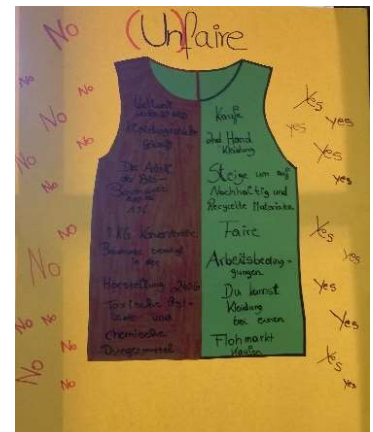 (Un)faire
No
No
No
No
No
No
No
No
No
No
No
No
No
Weltweit
Kleidungsstücke
gekauft
Der Anteil
der Bio-
Baumwolle
1%
1 KG Konventionelle
Baumwolle benötigt
in der
Herstellung
Toxische
und
chemische
Düngemittel
Kaufe
2nd Hand
Kleidung
Steige um auf
Nachhaltig und
Recycelte Materialien
Faire
Arbeitsbeding-
gungen
Du kannst
Kleidung
bei einen
Flohmarkt
Kaufen
Yes
Yes
yes
Yes
yes
Yes
yes
Yes
Yes
Yes
Yes